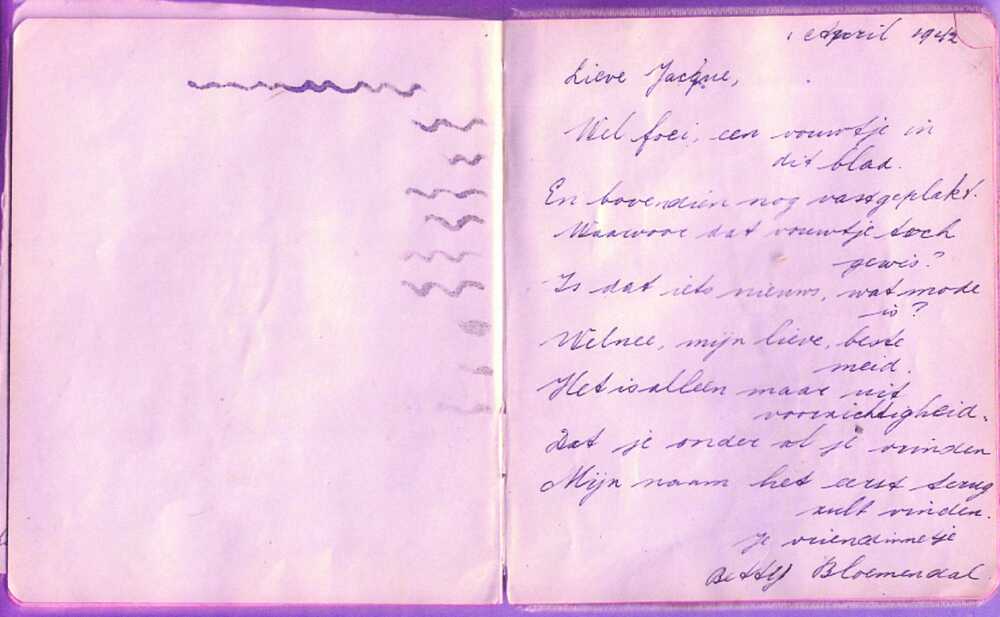 1 April 1942
Lieve Jacque,
Wel foei, een vouwtje in
dit blad.
En bovendien nog vastgeplakt.
Waarvoor dat vouwtje toch
gewis?
Is dat iets nieuws, wat mode
is?
Welnee, mijn lieve, beste
meid.
Het is alleen maar uit
voorzichtigheid.
Dat je onder al je vrinden
Mijn naam het eerst terug
zult vinden.
Je vriendinnetje
Betty Bloemendal